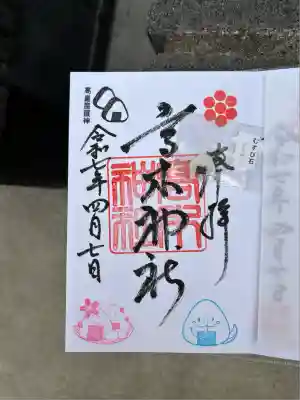 奉拝
むすび石
高木神社
高木神社
令和七年四月七日